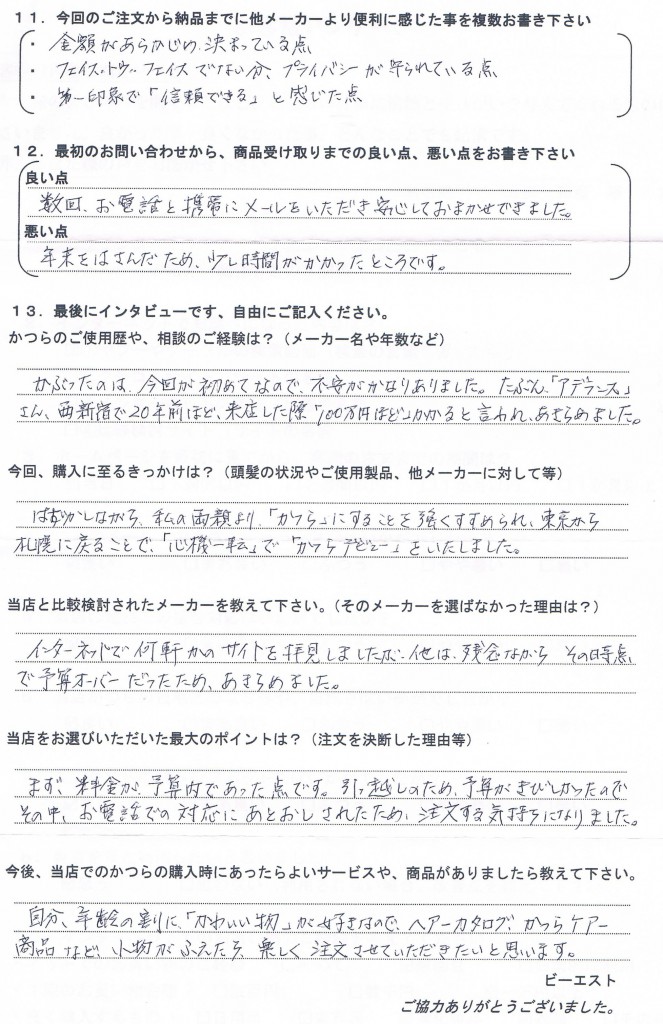 １１．今回のご注文から納品までに他メーカーより便利に感じた事を複数お書き下さい
・ 金額があらかじめ決まっている点
・ フェイス・トゥ・フェイスでない分、プライバシーが守られている点
・ 第一印象で「信頼できる」と感じた点
１２．最初のお問い合わせから、商品受け取りまでの良い点、悪い点をお書き下さい
良い点
数回、お電話と携帯にメールをいただき安心しておまかせできました。
悪い点
年末をはさんだため、少し時間がかかったところです。
１３．最後にインタビューです、自由にご記入ください。
かつらのご使用歴や、相談のご経験は？（メーカー名や年数など）
かぶったのは、今回が初めてなので、不安がかなりありました。たぶん、「アデランス」
さん、西新宿で20年前ほど、来店した際「100万円ほど」かかると言われ、あきらめました。
今回、購入に至るきっかけは？（頭髪の状況やご使用製品、他メーカーに対して等）
はずかしながら、私の両親より、「かつら」にすることを強くすすめられ、東京から
札幌に戻ることで、「心機一転」で「かつらデビュー」をいたしました。
当店と比較検討されたメーカーを教えて下さい。（そのメーカーを選ばなかった理由は？）
インターネットで何軒かのサイトを拝見しましたが、他は、残念ながら その時点
で予算オーバーだったため、あきらめました。
当店をお選びいただいた最大のポイントは？（注文を決断した理由等）
まず、料金が、予算内であった点です。引っ越しのため、予算がきびしかったので
その中、お電話での対応にあとおしされたため、注文する気持ちになりました。
今後、当店でのかつらの購入時にあったらよいサービスや、商品がありましたら教えて下さい。
自分、年齢の割に、「かわいい物」が好きなので、ヘアーカタログ、かつらケアー
商品など、小物がふえたら、楽しく注文させていただきたいと思います。
ビーエスト
ご協力ありがとうございました。